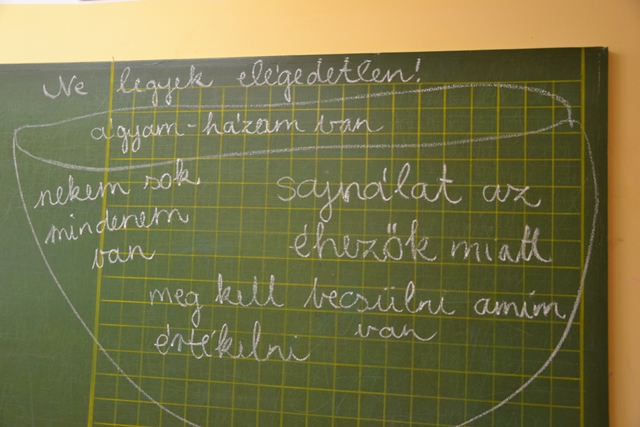 Ne legyek elégedetlen!
ágyam-házam van
nekem sok
mindenem
van
sajnálat az
éhezők miatt
meg kell becsülni amim
van
értékelni